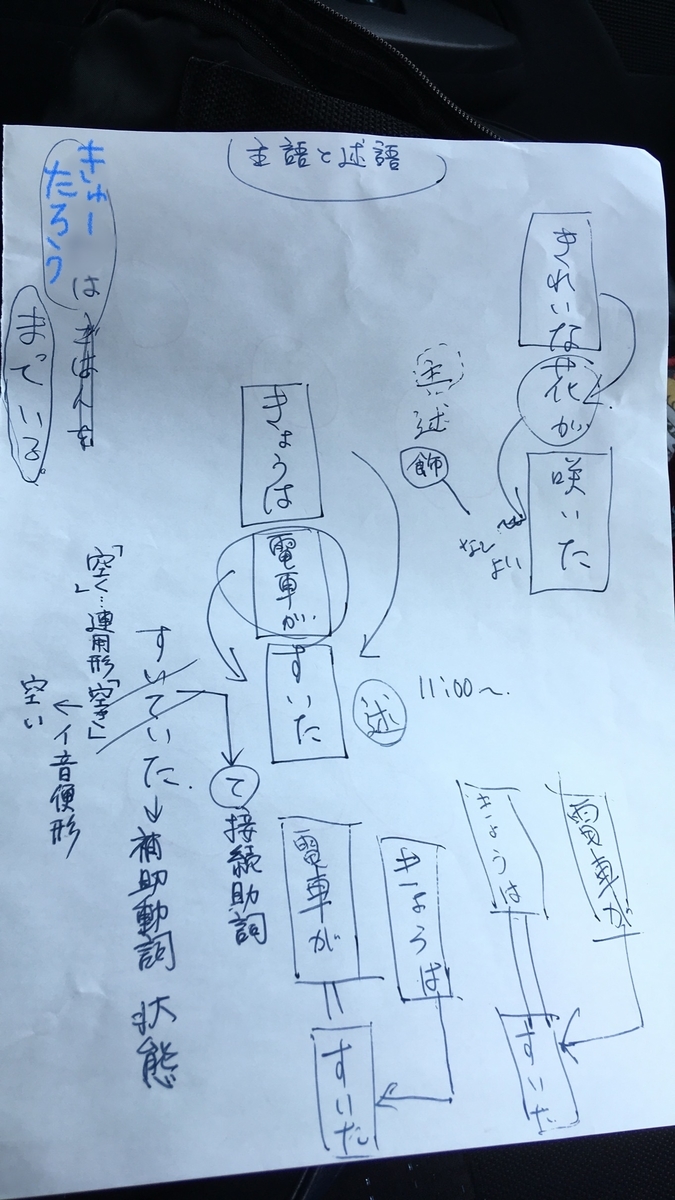 主語と述語
きれいな
花が
咲いた
主
述
飾
なし
よい
きょうは
電車が
すいた
述
11:00〜.
きゅー
たろう
は
ごはんを
まっている。
すいていた.
→補助動詞 状態
て
接続助詞
「空く」…連用形「空き」
←イ音便形
空い
電車が
きょうは
すいた
きょうは
電車が
すいた